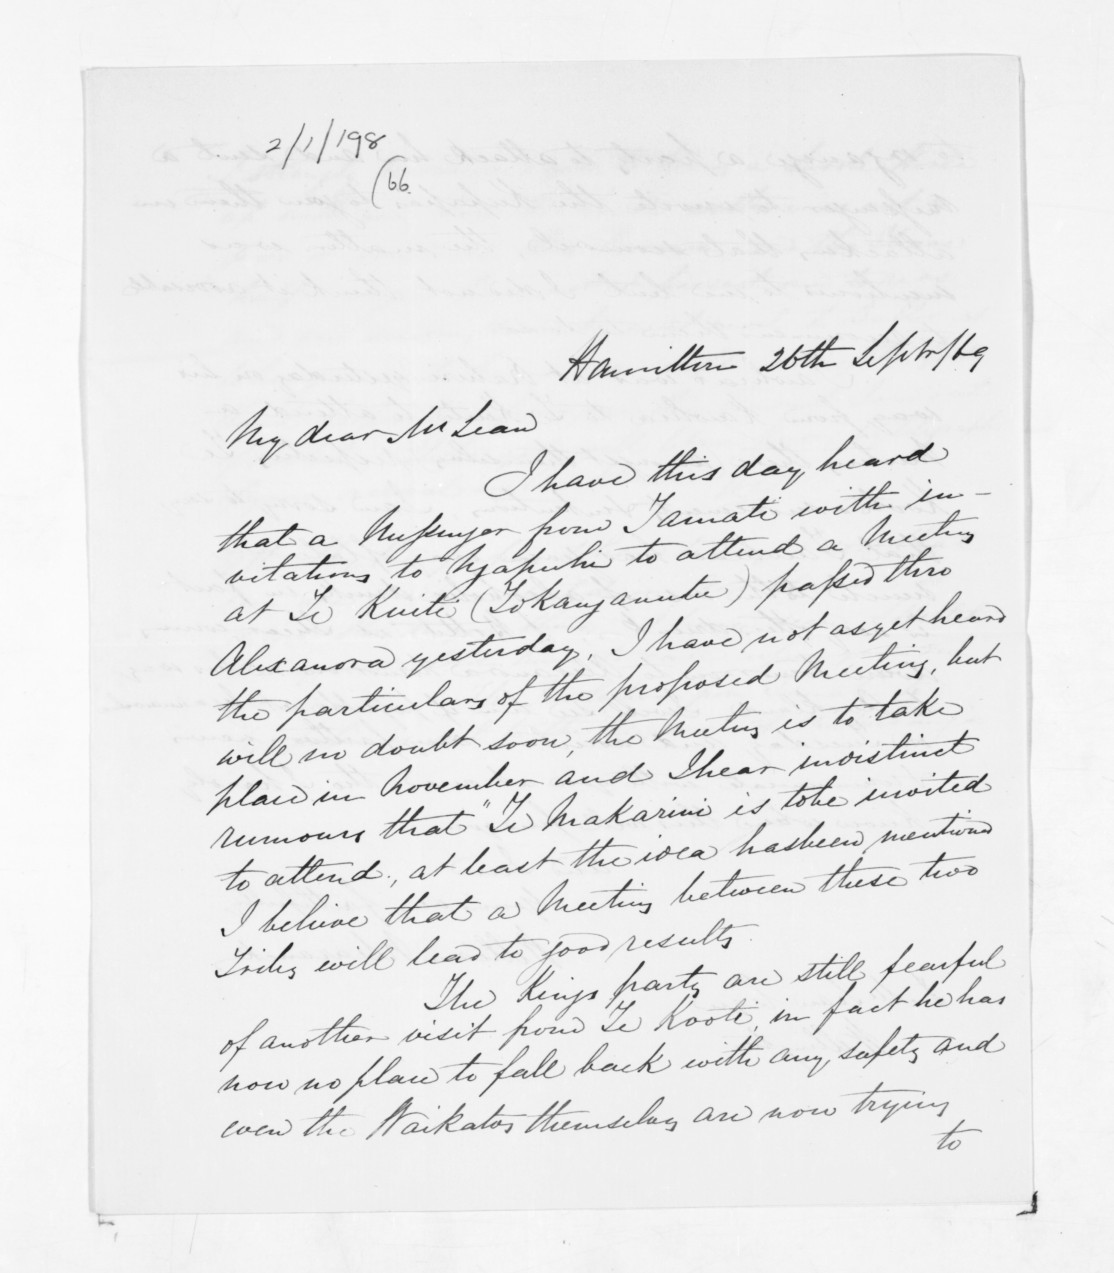 2/1/198
(66.
Hamilton 26th Septbr/69
My dear McLean
I have this day heard
that a Messenger from Tamati with in-
vitations to Ngapuhi to attend a Meeting
at Te Kuiti (Tokanganutu) passed thro
Alexandra yesterday, I have not as yet heard
the particulars of the proposed Meeting, but
will no doubt soon, the Meeting is to take
place in November and I hear indistinct
rumours that "Te Makarini is to be invited
to attend., at least the idea has been mentioned
I believe that a Meeting between these two
Tribes will lead to good results.
The Kings party are still fearful
of another visit from Te Kooti, in fact he has
now no place to fall back with any safety and
even the Waikatos themselves are now trying
to